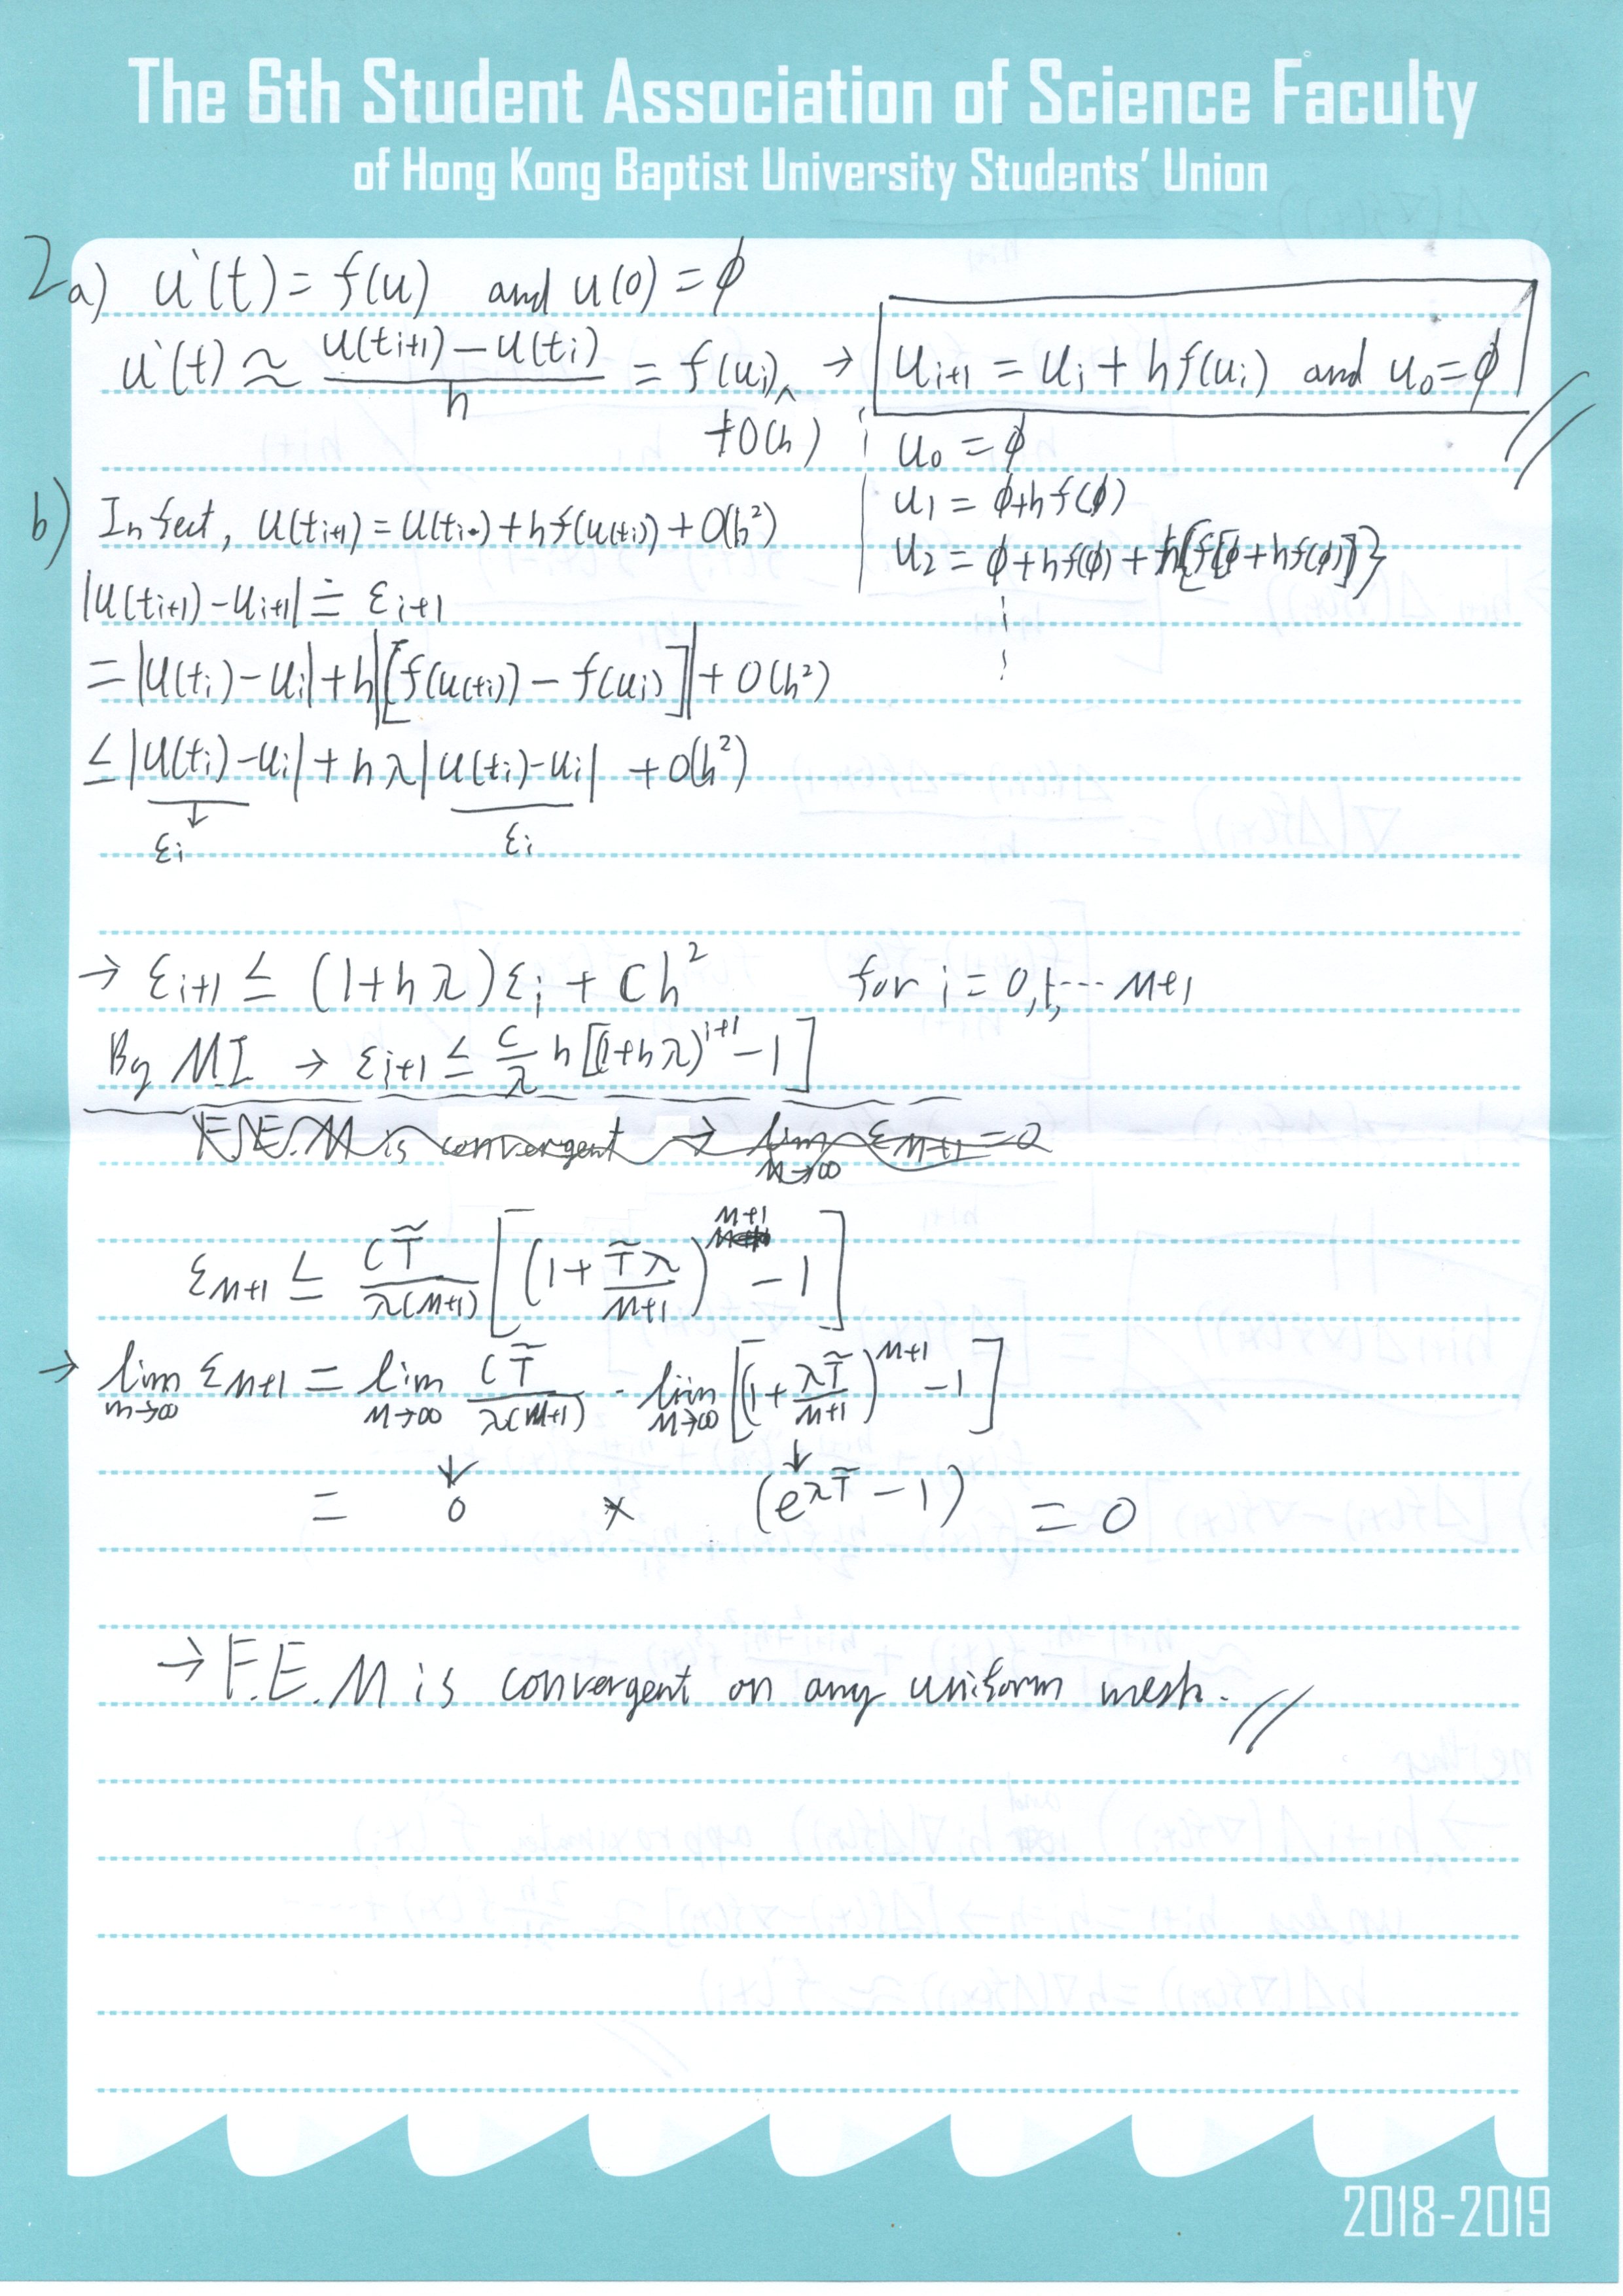 The 6th Student Association of Science Faculty
of Hong Kong Baptist University Students' Union
2a) u'(t) = f(u) and u(0) = ϕ
u'(t) ≈ (u(ti+1) − u(ti))/h = f(ui) + O(h) → ui+1 = ui + hf(ui) and u0 = ϕ
u0 = ϕ
u1 = ϕ+hf(ϕ)
u2 = ϕ+hf(ϕ) + h{f[ϕ+hf(ϕ)]}
b) In fect, u(ti+1) = u(ti) + hf(u(ti)) + O(h²)
|u(ti+1) − ui+1| ≐ εi+1
= |u(ti) − ui| + h|[f(u(ti)) − f(ui)]| + O(h²)
≤ |u(ti) − ui| + hλ|u(ti) − ui| + O(h²)
↓
εi εi
→ εi+1 ≤ (1+hλ)εi + Ch² for i = 0,1,... M+1
By MI → εi+1 ≤ C/λ h[(1+hλ)^(i+1) − 1]
F.E.M is convergent → lim M→∞ εM+1 = 0
εM+1 ≤ CT̃/(λ(M+1)) [(1 + T̃λ/(M+1))^(M+1) − 1]
→ lim m→∞ εM+1 = lim M→∞ CT̃/(λ(M+1)) · lim M→∞ [(1 + λT̃/(M+1))^(M+1) − 1]
↓ ↓
= 0 × (e^(λT̃) − 1) = 0
→ F.E.M is convergent on any uniform mesh. //
2018-2019